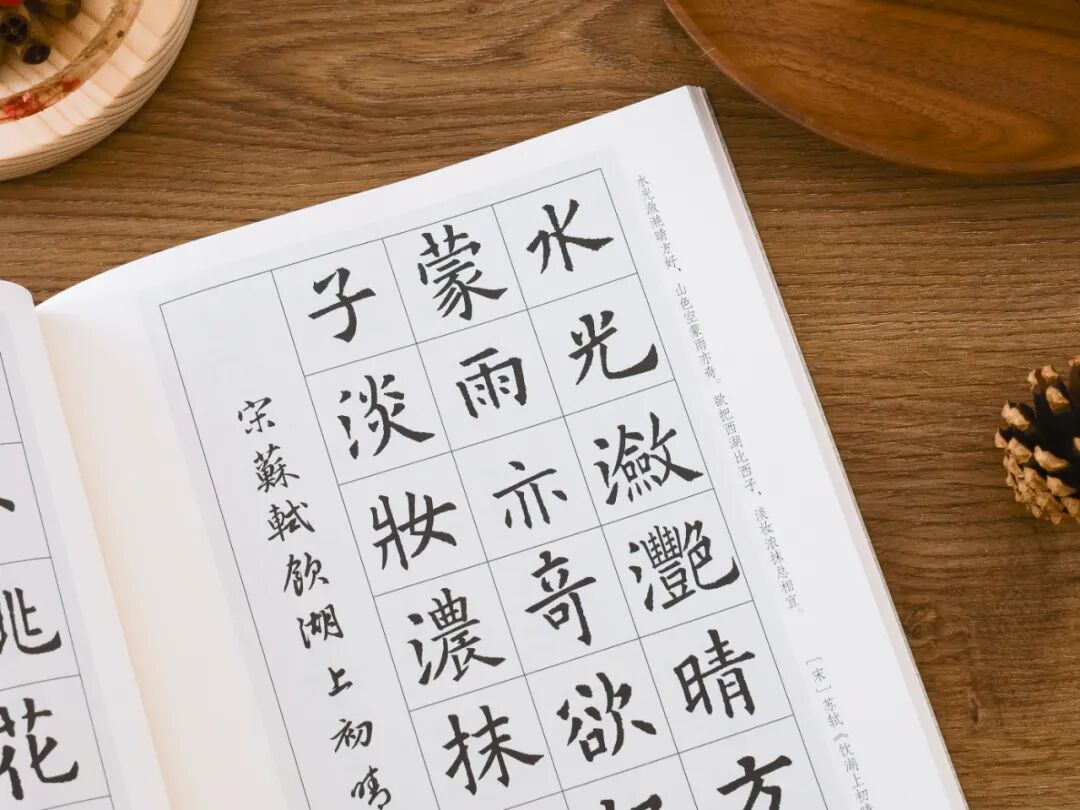 水光潋滟晴方好，山色空蒙雨亦奇。欲把西湖比西子，淡妆浓抹总相宜。
［宋］苏轼《饮湖上初
水光瀲灩晴方
蒙雨亦奇欲
子淡妝濃抹
宋蘇軾飲湖上初晴
花